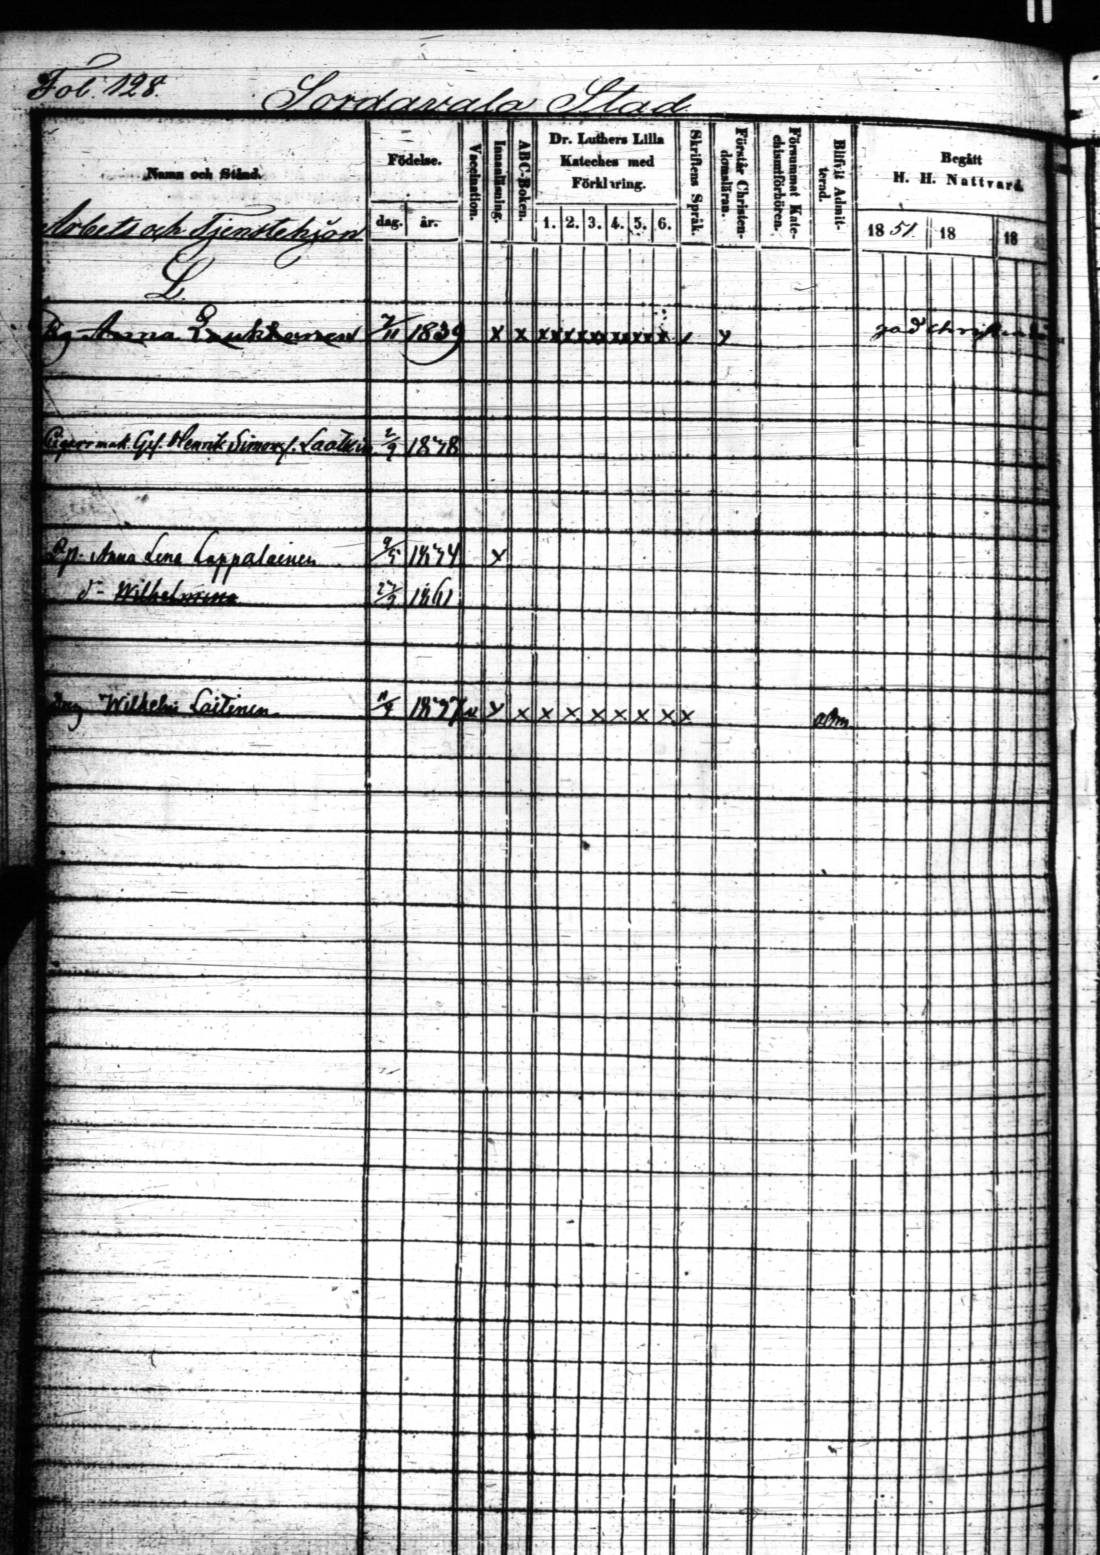 Fol. 128
Sordavala Stad
Namn och Stånd.
Födelse.
dag.
år.
Vaccination.
Innanläsning.
ABC-Boken.
Dr. Luthers Lilla
Kateches med
Förklaring.
1. 2. 3. 4. 5. 6.
Skriftens Språk.
Förstår Christen-
domsläran.
Försummat Kate-
chismiförhören.
Blifvit Admit-
terad.
Begått
H. H. Nattvard.
18 51 18 18
Arbets och Tjenstehjon
L.
Anna 1839 x x x
Henrik Simonsf.
Anna Lena Lappalainen x
d- Wilhelmina 1861
Wilhelm Laitinen x x x x x x x x x adm